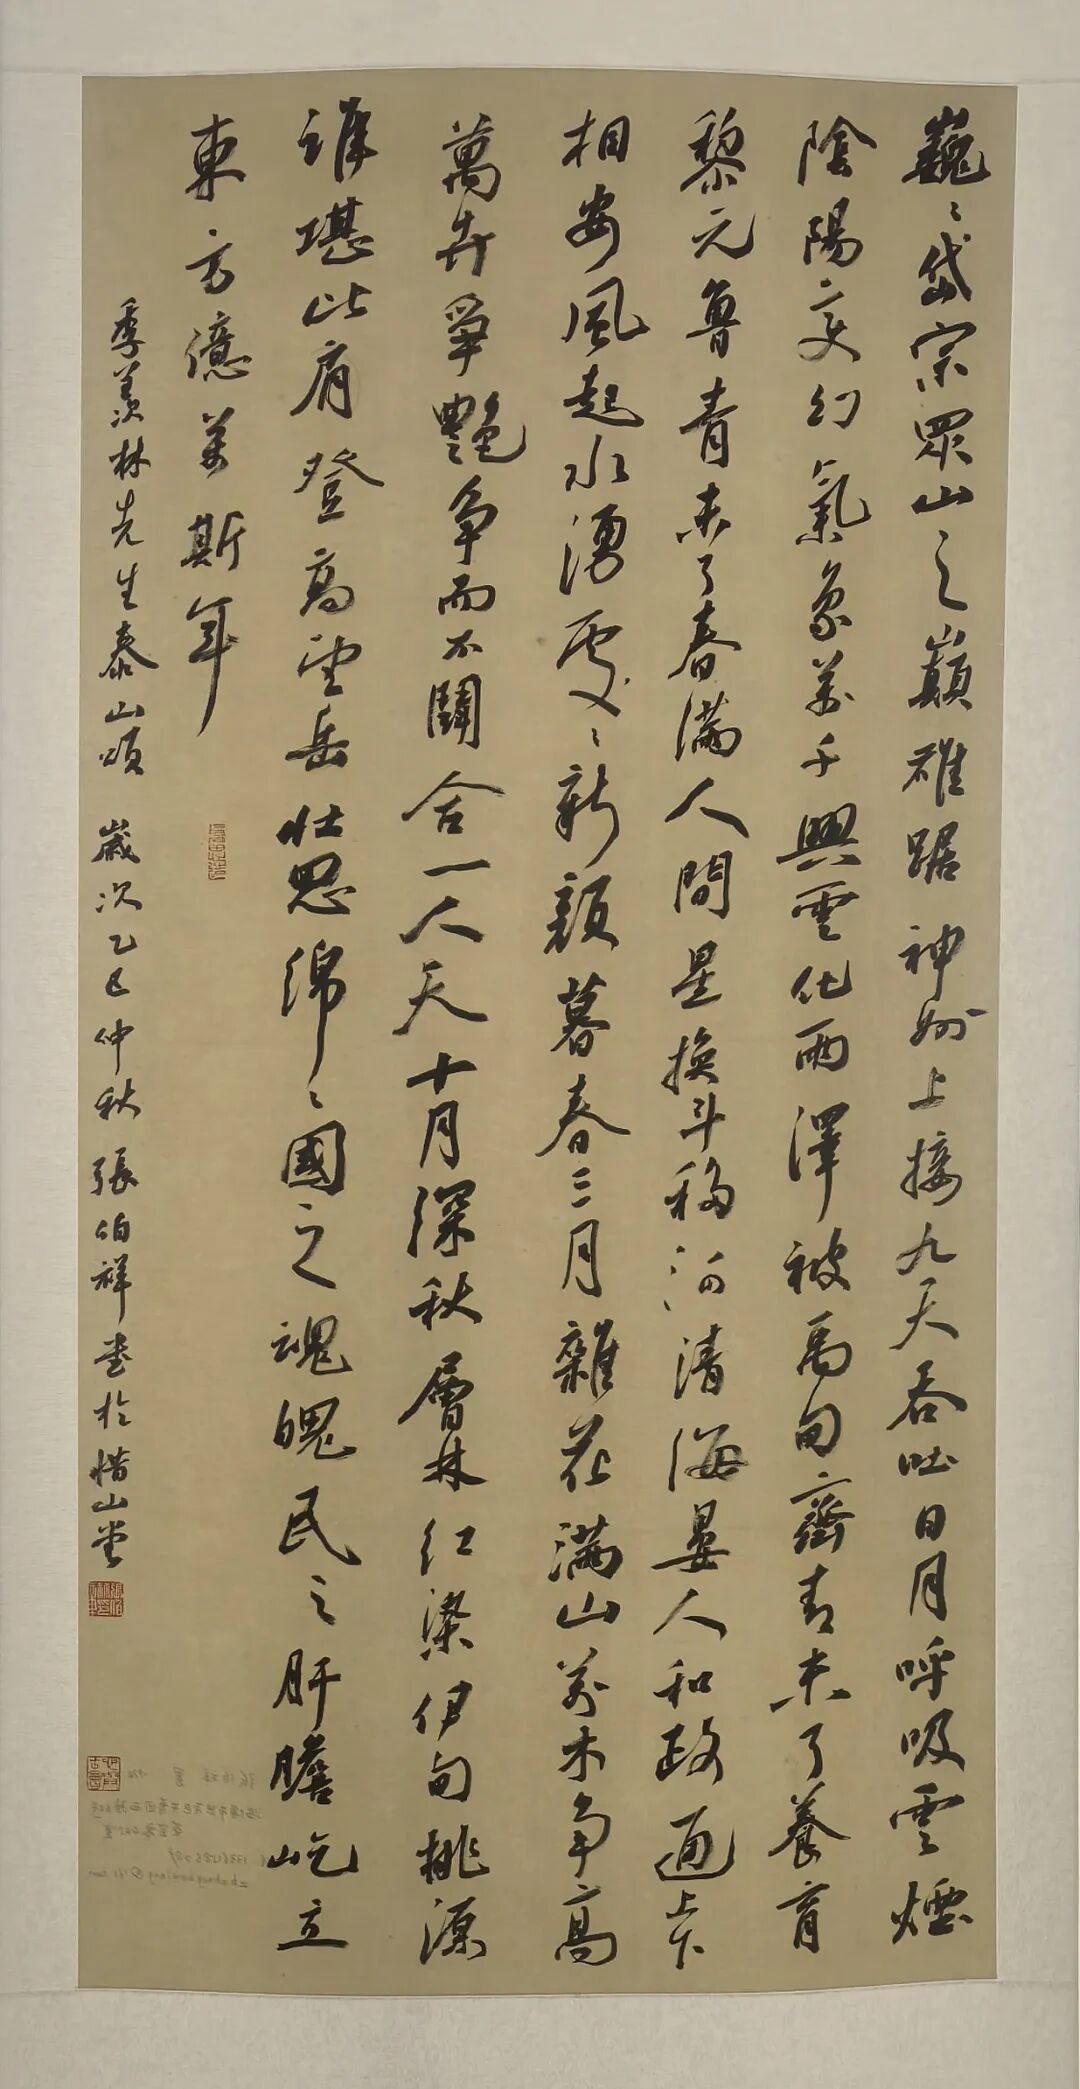 巍〻岱宗眾山之巔雄踞神州上接九天吞吐日月呼吸雲煙
陰陽变幻氣象萬千興雲化雨澤被禹甸齊青未了養育
黎元魯青未了春滿人間星換斗移河清海晏人和政通上下
相安風起水湧處〻新顏暮春三月雜花滿山萬木爭高
萬卉爭艷爭而不鬭合一人天十月深秋層林紅染伊甸桃源
誰堪比肩登高望岳壯思綿〻國之魂魄民之肝膽屹立
東方億萬斯年
季羨林先生泰山頌 歲次乙巳仲秋 張伯祥書於惜山堂